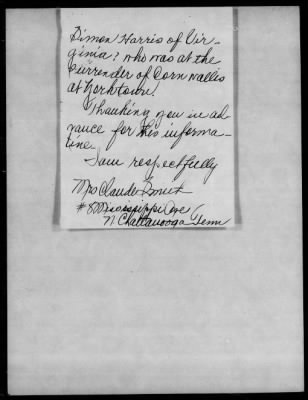 Simon Harris of Vir-
ginia? who was at the
Surrender of Cornwallis
at Yorktown!
Thanking you in ad-
vance for this informa-
tine.
I am respectfully
Mrs Claude
# 800 Mississippi Ave
N Chattanooga Tenn